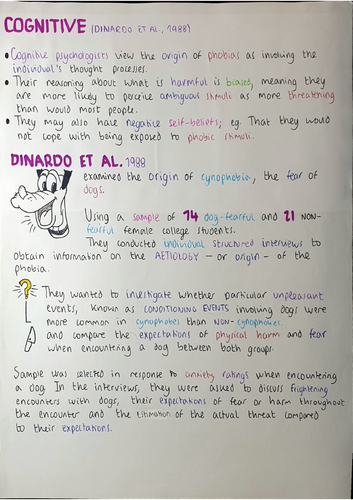 COGNITIVE (DINARDO ET AL., 1988)
• Cognitive psychologists view the origin of phobias as involving the
individual's thought processes.
• Their reasoning about what is harmful is biased, meaning they
are more likely to perceive ambiguous stimuli as more threatening
than would most people.
• They may also have negative self-beliefs; eg. That they would
not cope with being exposed to phobic stimuli.
DINARDO ET AL. 1988
examined the origin of cynophobia, the fear of
dogs.
Using a sample of 14 dog-fearful and 21 NON-
fearful female college students.
They conducted individual structured interviews to
obtain information on the AETIOLOGY - or origin - of the
phobia.
They wanted to investigate whether particular unpleasant
events, known as CONDITIONING EVENTS involving dogs were
more common in cynophobes than NON-cynophobes,
and compare the expectations of physical harm and fear
when encountering a dog between both groups.
Sample was selected in response to anxiety ratings when encountering
a dog. In the interviews, they were asked to discuss frightening
encounters with dogs, their expectations of fear or harm throughout
the encounter and the of the actual threat compared
to their expectations.